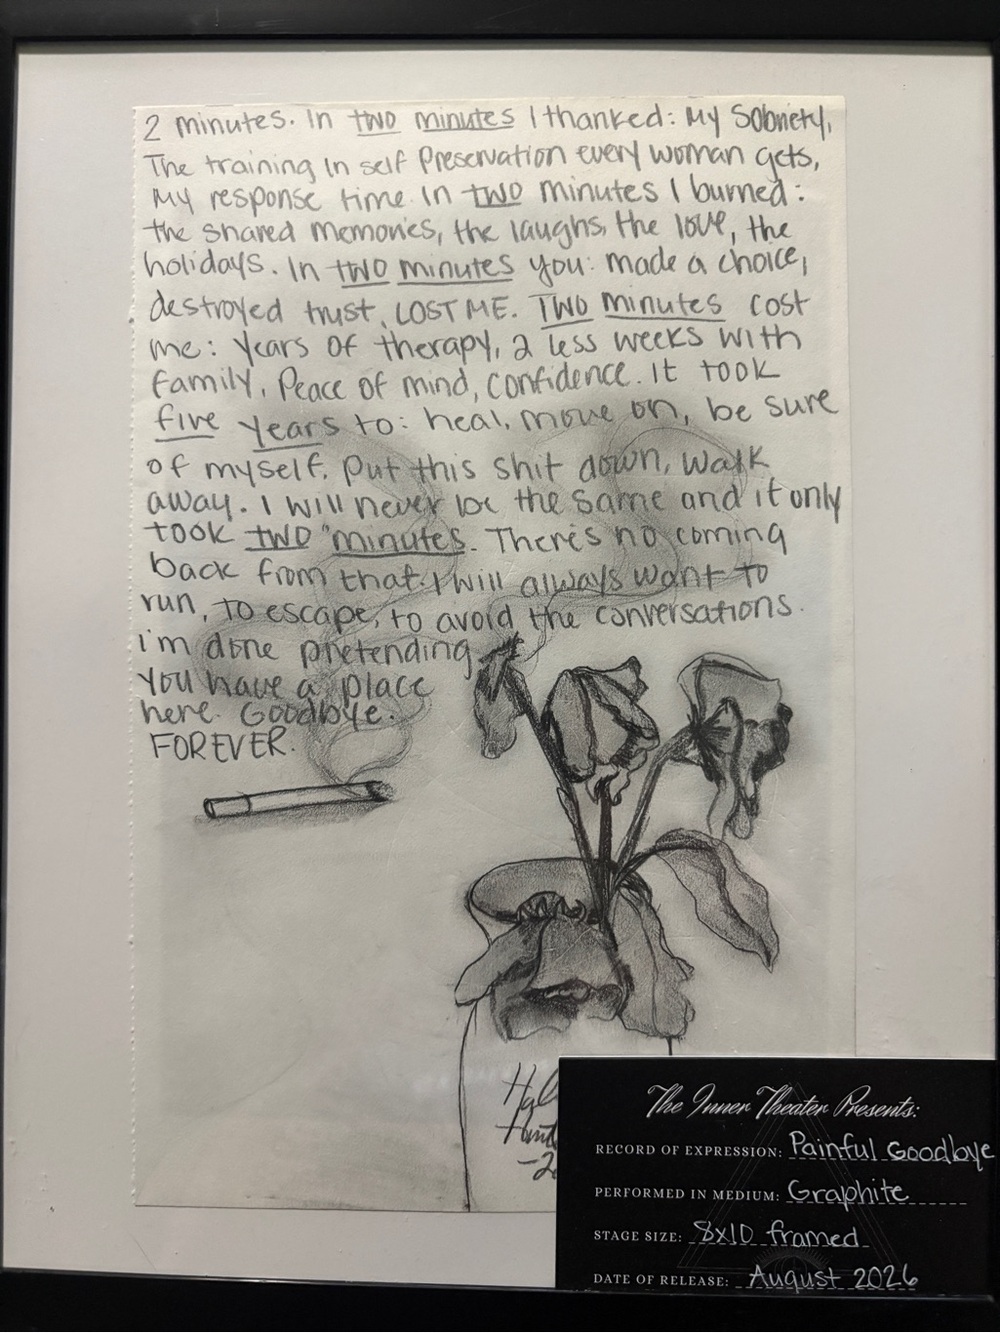 2 minutes. In two minutes I thanked: My Sobriety,
The training In self Preservation every woman gets,
My response time. In two minutes I burned:
the shared memories, the laughs, the love, the
holidays. In two minutes you: made a choice,
destroyed trust, LOST ME. Two minutes cost
me: years of therapy, 2 less weeks with
family, Peace of mind, confidence. It took
five years to: heal, move on, be sure
of myself. Put this shit down, walk
away. I will never be the same and it only
took two minutes. There's no coming
back from that. I will always want to
run, to escape, to avoid the conversations.
I'm done pretending
You have a place
here. Goodbye.
FOREVER.
The Inner Theater Presents:
RECORD OF EXPRESSION: Painful Goodbye
PERFORMED IN MEDIUM: Graphite
STAGE SIZE: 8x10 framed
DATE OF RELEASE: August 2026